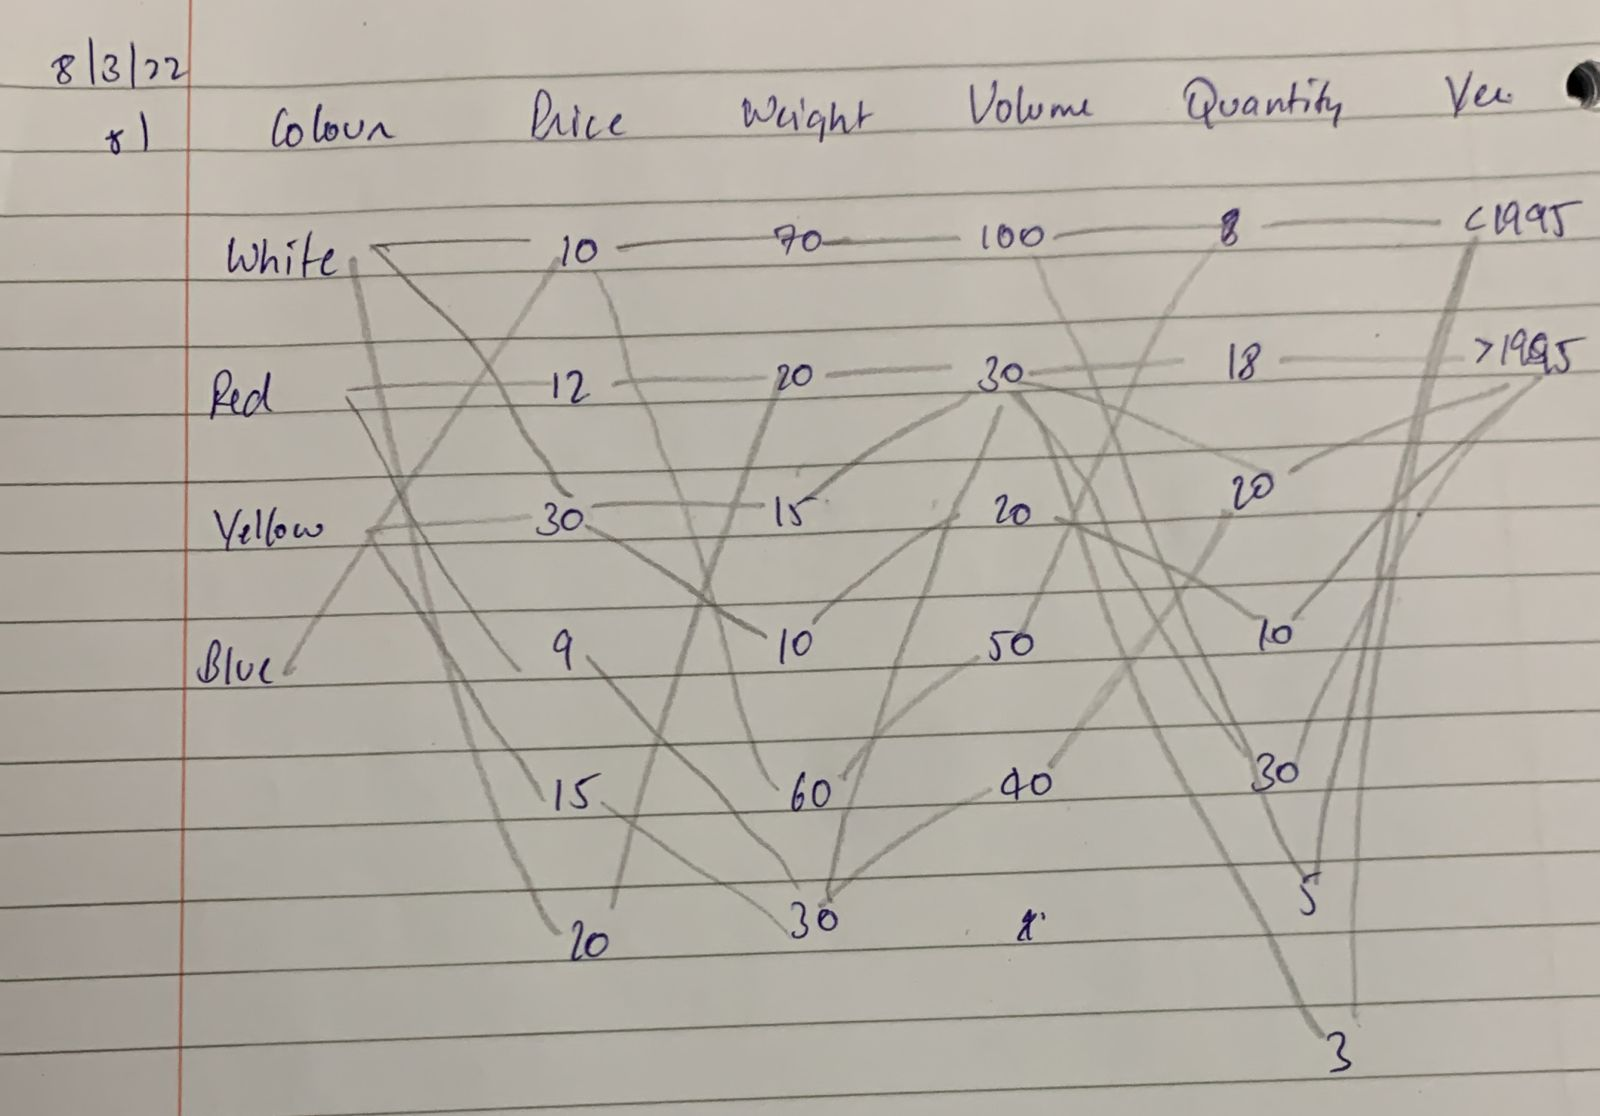 8/3/22
Colour Price Weight Volume Quantity
White 10 70 100 8 <1995
Red 12 20 30 18 >1995
Yellow 30 15 20 20
Blue 9 10 50 10
15 60 40 30
20 30 5
3